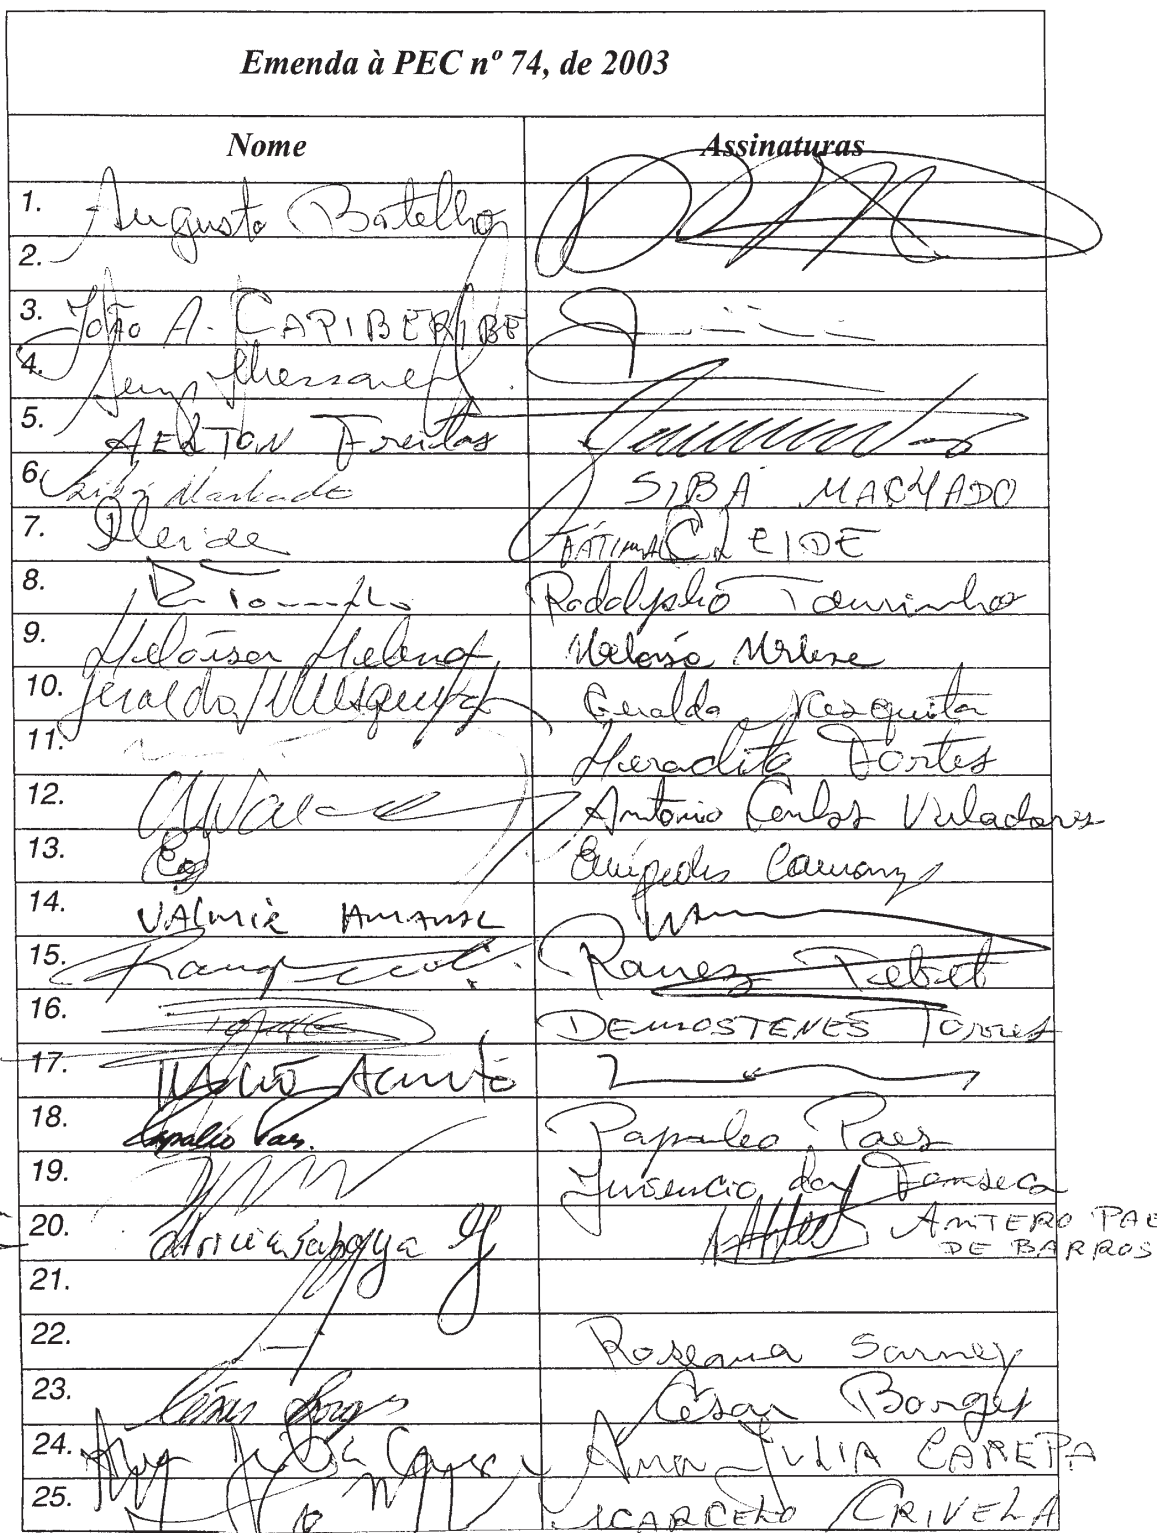 Emenda à PEC nº 74, de 2003
Nome Assinaturas
1. Augusto Botelho
2.
3. João A. CAPIBERIBE
4.
5. AELTON Freitas
6. Sibá Machado SIBÁ MACHADO
7. Cleide FÁTIMA CLEIDE
8. Rodolpho Tourinho
9. Heloísa Helena Heloísa Helena
10. Geraldo Mesquita Geraldo Mesquita
11. Heraclito Fortes
12. Antonio Carlos Valadares
13. Camargo
14. VALMIR AMARAL
15. Ramez Tebet
16. DEMOSTENES Torres
17.
18. Papaléo Paes. Papaleo Paes
19. Juvencio da Fonseca
20. ANTERO PAES
DE BARROS
21.
22. Roseana Sarney
23. César Borges César Borges
24. Ana Júlia Carepa Ana JULIA CAREPA
25. MARCELO CRIVELA